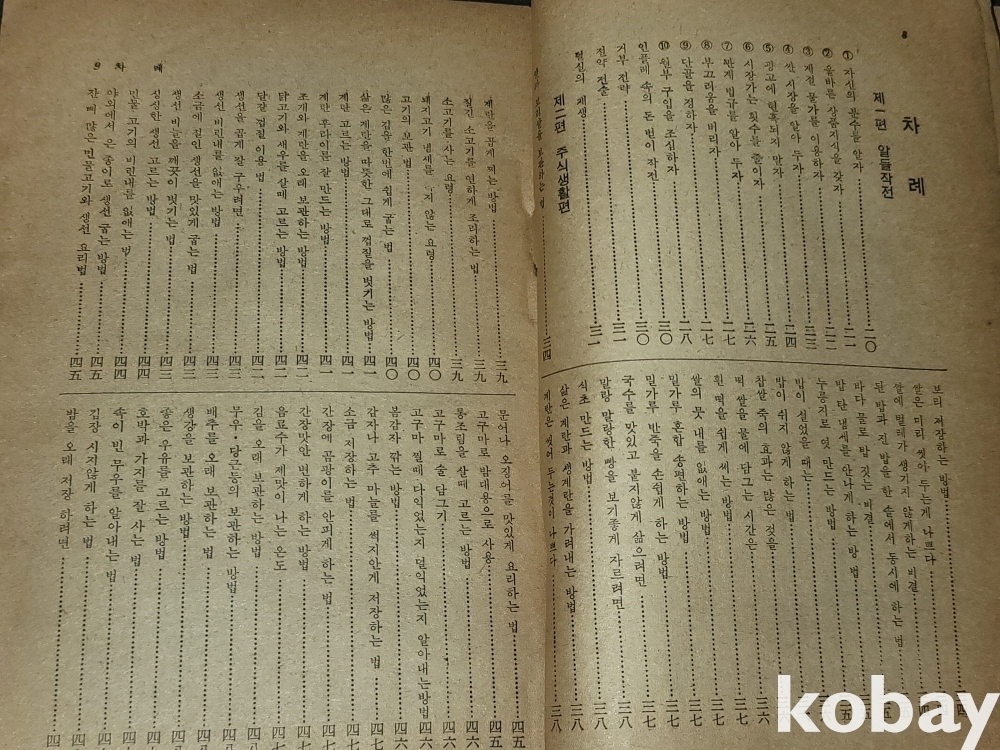 8
차 례
제一편 알들작전
① 자신의 분수를 알자 二〇
② 올바른 상품지식을 갖자 二二
③ 계절 물가를 이용하자 二三
④ 싼 시장을 알아 두자 二四
⑤ 광고에 현혹되지 말자 二五
⑥ 시장가는 횟수를 줄이자 二六
⑦ 판계 법규를 알아 두자 二七
⑧ 부끄러움을 버리자 二七
⑨ 단골을 정하자 二八
⑩ 원부 구입을 조심하자 三〇
인플레 속의 돈 번이 작전 三〇
거부 전략 三一
절약 전술 三一
헌신의 재생
제二편 주식생활편
보리쌀을 보관하는 법 三四
보리 저장하는 방법
쌀은 미리 씻어 두는게 나쁘다
쌀에 벌레가 생기지 않게하는 비결
된 밥과 진 밥을 한 솥에서 동시에 하는 법
바다 물로 밥 짓는 비결
밥 탄 냄새를 안나게 하는 방법
누룽지로 엿 만드는 방법
밥이 설었을 때는
밥이 쉬지 않게 하는 법
찹쌀 죽의 효과는 많은 것을 三六
떡 쌀을 물에 담그는 시간은 三六
흰 떡을 쉽게 써는 방법 三七
쌀의 뭇 내를 없애는 방법 三七
밀가루 혼합 송편하는 방법 三七
밀가루 반죽을 손쉽게 하는 방법 三七
국수를 맛있고 붙지않게 삶으려면 三八
말랑 말랑한 빵을 보기좋게 자르려면 三八
식초 만드는 방법 三八
삶은 계란과 생계란을 가려내는 방법 三八
계란은 씻어 두는것이 나쁘다 三八
9 차 례
계란을 곱게 깨는 방법 三九
질긴 소고기를 연하게 조리하는 법 三九
소고기를 사는 요령 三九
돼지고기 냄새를 지 않는 요령 四〇
고기의 보관법 四〇
많은 김을 한번에 쉽게 굽는 법 四〇
삶은 계란을 따뜻한 그대로 껍질을 벗기는 방법 四一
계란 고르는 방법 四一
계란 후라이를 잘 만드는 방법 四一
조개와 계란을 오래 보관하는 방법 四二
닭고기와 새우를 살때 고르는 방법 四二
달걀 껍질 이용 법 四二
생선을 곱게 잘 구우려면 四三
생선 비린내를 없애는 방법 四三
소금에 절인 생선을 맛있게 굽는 법 四三
생선 비눌을 깨끗이 벗기는 법 四三
싱싱한 생선 고르는 방법 四四
민물 고기의 비린내를 없애는 법 四四
야외에서 은 종이로 생선 굽는 방법 四五
잔 뼈 많은 민물고기와 생선 요리법 四五
문어나 오징어를 맛있게 요리하는 법 四五
고구마로 밤대용으로 사용 四五
통조림을 살때 고르는 방법 四六
고구마로 술 담그기 四六
고구마 찔때 다익었는지 덜익었는지 알아내는방법 四六
봄감자 깎는 방법 四六
감자나 고추 마늘를 썩지안게 저장하는 법 四七
소금 저장하는 법 四七
간장에 곰팡이를 안피게 하는 법
간장맛안 변하게 하는 방법
음료수가 제맛이 나는 온도
김을 오래 보관하는 방법
무우·당근등의 보관하는 방법
배추를 오래 보관하는 법
생강을 보관하는 방법
좋은 우유를 고르는 방법
호박과 가지를 잘 사는 법
속이 빈 무우를 알아내는 법
김장 시지않게 하는 법
밤을 오래 저장 하려면
kobay